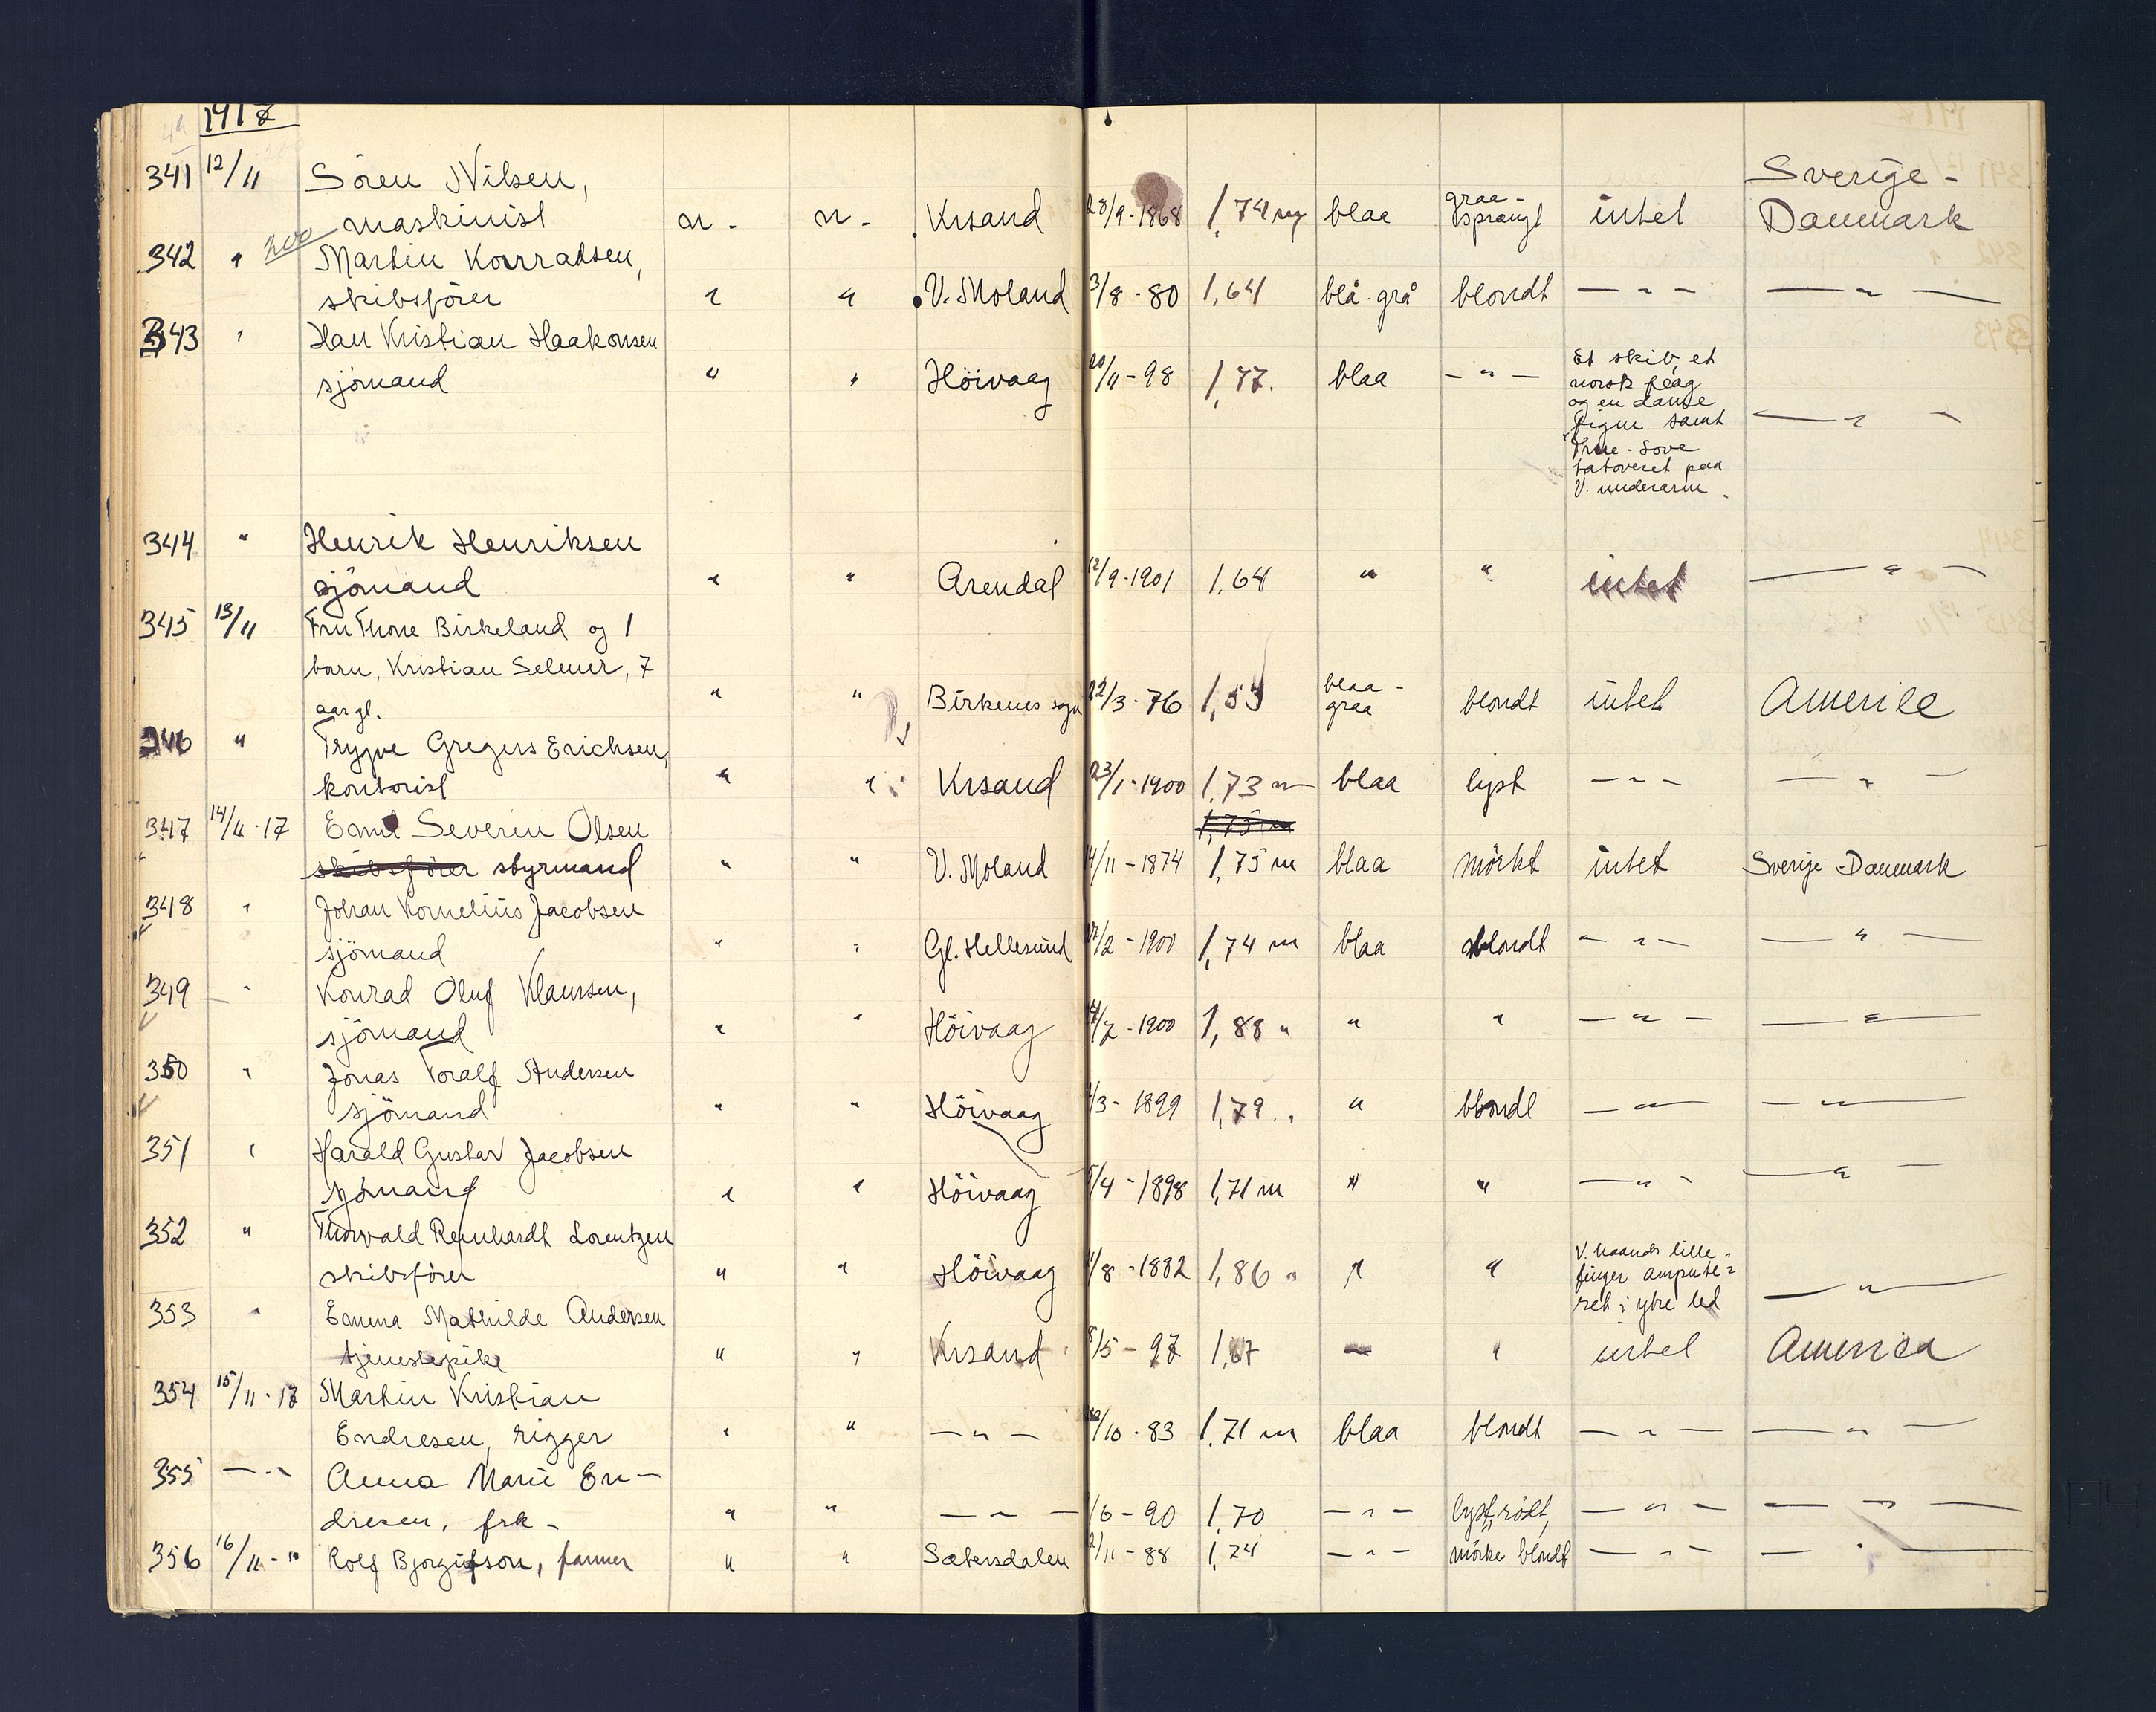 1917
341 12/11 Sören Nilsen,
Sverige -
maskinist n. n. Krsand 28/9-1868 1,74 m blaa graa-sprængt intet Danmark
342 " 200 Martin Konradsen,
skibsförer " " V. Moland 3/8-80 1,64 blå-grå blondt — " — — " —
343 " Han Kristian Haakonsen
sjömand " " Höivaag 20/11-98 1,77. blaa — " —
Et skib, et
norsk flag
og en danse
figur samt
"True-Love
tatoveret paa
V. underarm.
— " —
344 " Henrik Henriksen
sjömand " " Arendal 12/9-1901 1,64 " " intet — " —
345 13/11 Fru Thone Birkeland og 1
barn, Kristian Selmer, 7
aar gl. " " Birkenes sogn 22/3-76 1,53 blaa-graa blondt intet
346 " Trygve Gregers Erichsen,
kontorist " " Krsand 23/1-1900 1,73 m blaa lyst — " — — " —
347 14/11-17 Emil Severin Olsen
skibsförer styrmand " " V. Moland 4/11-1874 1,75 m blaa mörkt intet Sverige-Danmark
348 " Johan Kornelius Jacobsen
sjömand " " Gl. Hellesund /2-1900 1,74 m blaa blondt — " — — " —
349 " Konrad Oluf Klaussen,
sjömand " " Höivaag /7-1900 1,88 " " " — " — — " —
350 " Jonas Toralf Andersen
sjömand " " Höivaag /3-1899 1,79 " " blondt — " — — " —
351 " Harald Gustav Jacobsen
sjömand " " Höivaag /4-1898 1,71 m " " — " — — " —
352 " Thorvald Reinhardt Lorentzen
skibsförer " " Höivaag /8-1882 1,86 " " "
V. haands lille-
finger ampute=
ret i ytre led
— " —
353 " Emma Mathilde Andersen
tjenestepike " " Krsand 8/5-97 1,67 — " intet America
354 15/11-17 Martin Kristian
Endresen, rigger " " — " — /10-83 1,71 m blaa blondt — " — — " —
355 — " — Anna Marie En-
dresen, frk- " " — " — /6-90 1,70 — " — lyst rödt, — " — — " —
356 16/11-" Rolf Bjorgufson, farmer " " Sætersdalen 2/11-88 1,74 — " — mörke blondt — " — — " —